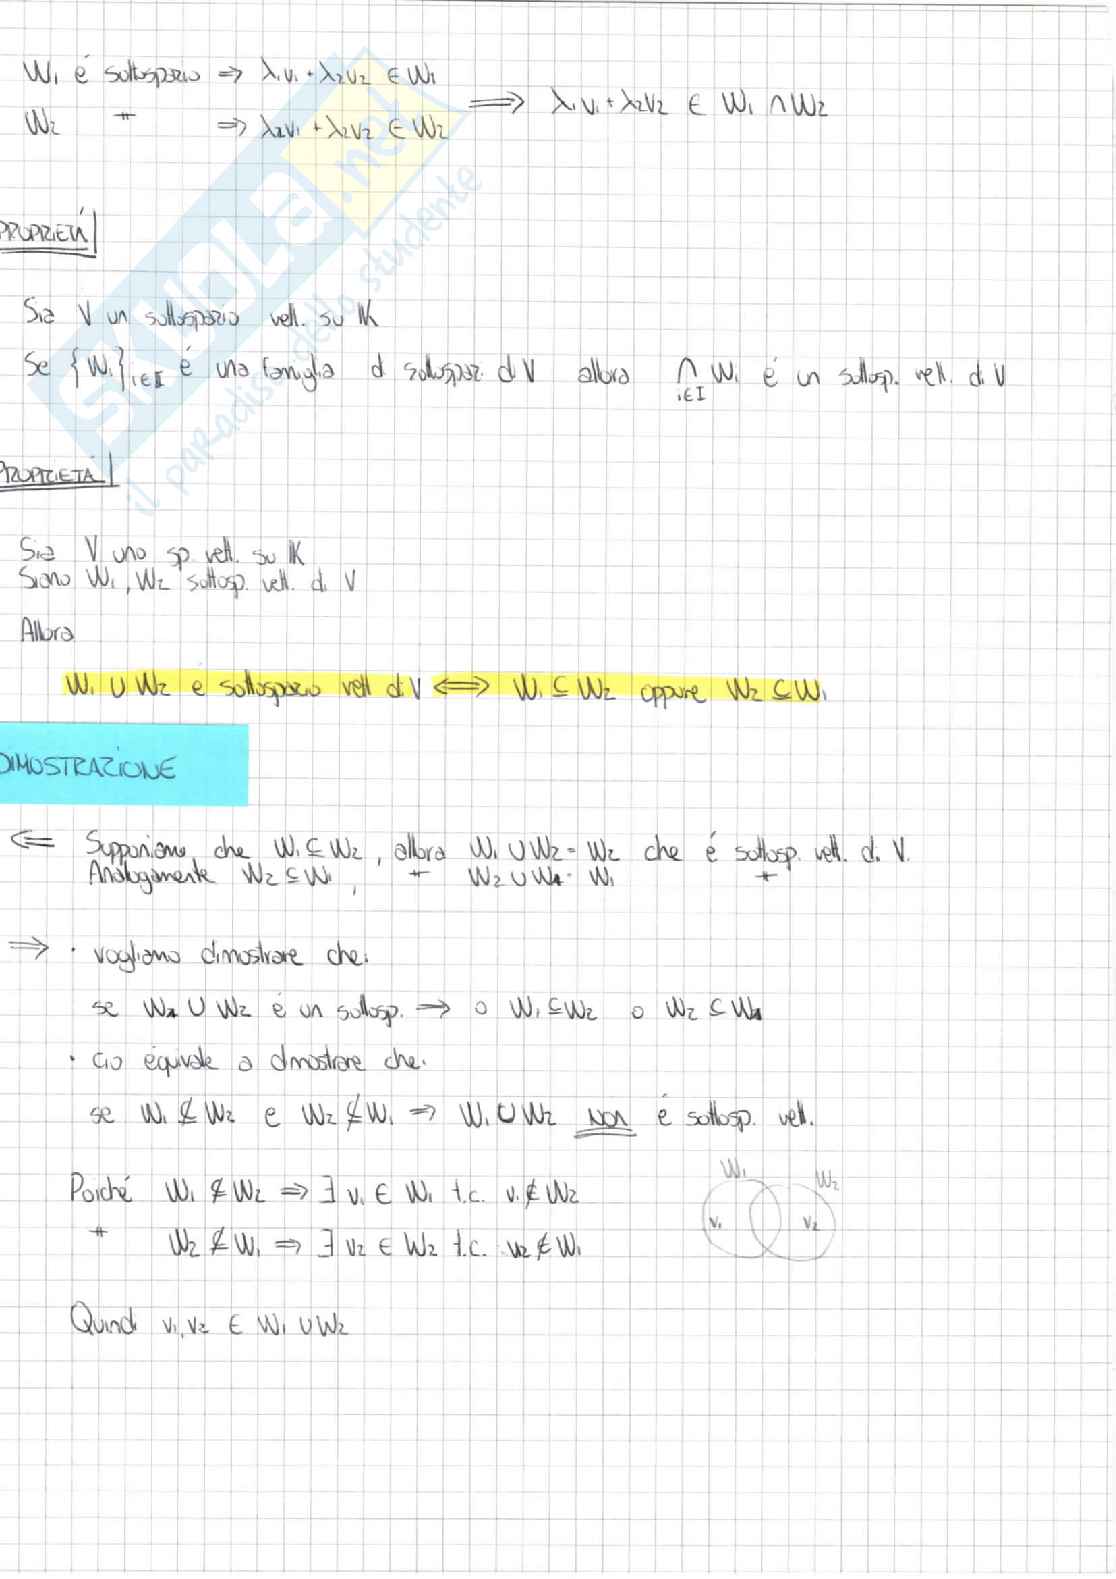 W₁ é sottospazio ⇒ λ₁v₁+λ₂v₂ ∈ W₁
W₂ # ⇒ λ₁v₁+λ₂v₂ ∈ W₂
⟹ λ₁v₁+λ₂v₂ ∈ W₁ ∩ W₂
PROPRIETÁ
Sia V un sottospazio vett. su K
Se {Wᵢ}ᵢ∈I é una famiglia di sottospaz. di V allora ∩ᵢ∈I Wᵢ é un sottosp. vett. di V
PROPRIETÁ
Sia V uno sp. vett. su K
Siano W₁, W₂ sottosp. vett. di V
Allora
W₁ ∪ W₂ é sottospazio vett di V ⟺ W₁ ⊆ W₂ oppure W₂ ⊆ W₁
DIMOSTRAZIONE
⇐ Supponiamo che W₁ ⊆ W₂, allora W₁ ∪ W₂ = W₂ che é sottosp. vett. di V.
Analogamente W₂ ⊆ W₁, # W₂ ∪ W₁ = W₁ #
⇒ · vogliamo dimostrare che:
se W₁ ∪ W₂ é un sottosp. ⇒ o W₁ ⊆ W₂ o W₂ ⊆ W₁
· ció equivale a dimostrare che:
se W₁ ⊈ W₂ e W₂ ⊈ W₁ ⇒ W₁ ∪ W₂ NON é sottosp. vett.
Poiché W₁ ⊈ W₂ ⇒ ∃ v₁ ∈ W₁ t.c. v₁ ∉ W₂
# W₂ ⊈ W₁ ⇒ ∃ v₂ ∈ W₂ t.c. v₂ ∉ W₁
W₁ W₂
v₁ v₂
Quindi v₁, v₂ ∈ W₁ ∪ W₂
SKUOLA.net
il paradiso dello studente